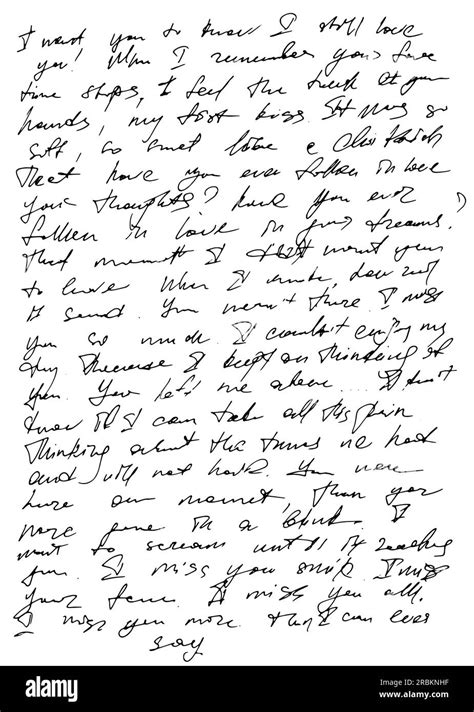 I want you to know I still love
you! When I remember your face
time stops, I feel the touch of your
hands, my first kiss. It was so
soft, so sweet like a
that have you ever fallen in love
your thoughts? have you ever
fallen in love in your dreams?
that moment I didn't want you
to leave when I
it You weren't there I miss
you so much. I couldn't enjoy my
day because I kept on thinking of
you. You left me alone.... I don't
know if I can take all this pain
Thinking about the times we had
and will not have. You were
here one moment, than you
were gone in a blink. I
want to scream until it reaches
you. I miss your smile. I miss
your I miss you all.
I miss you more than I can ever
say
alamy
Image ID: 2RBKNHF
www.alamy.com